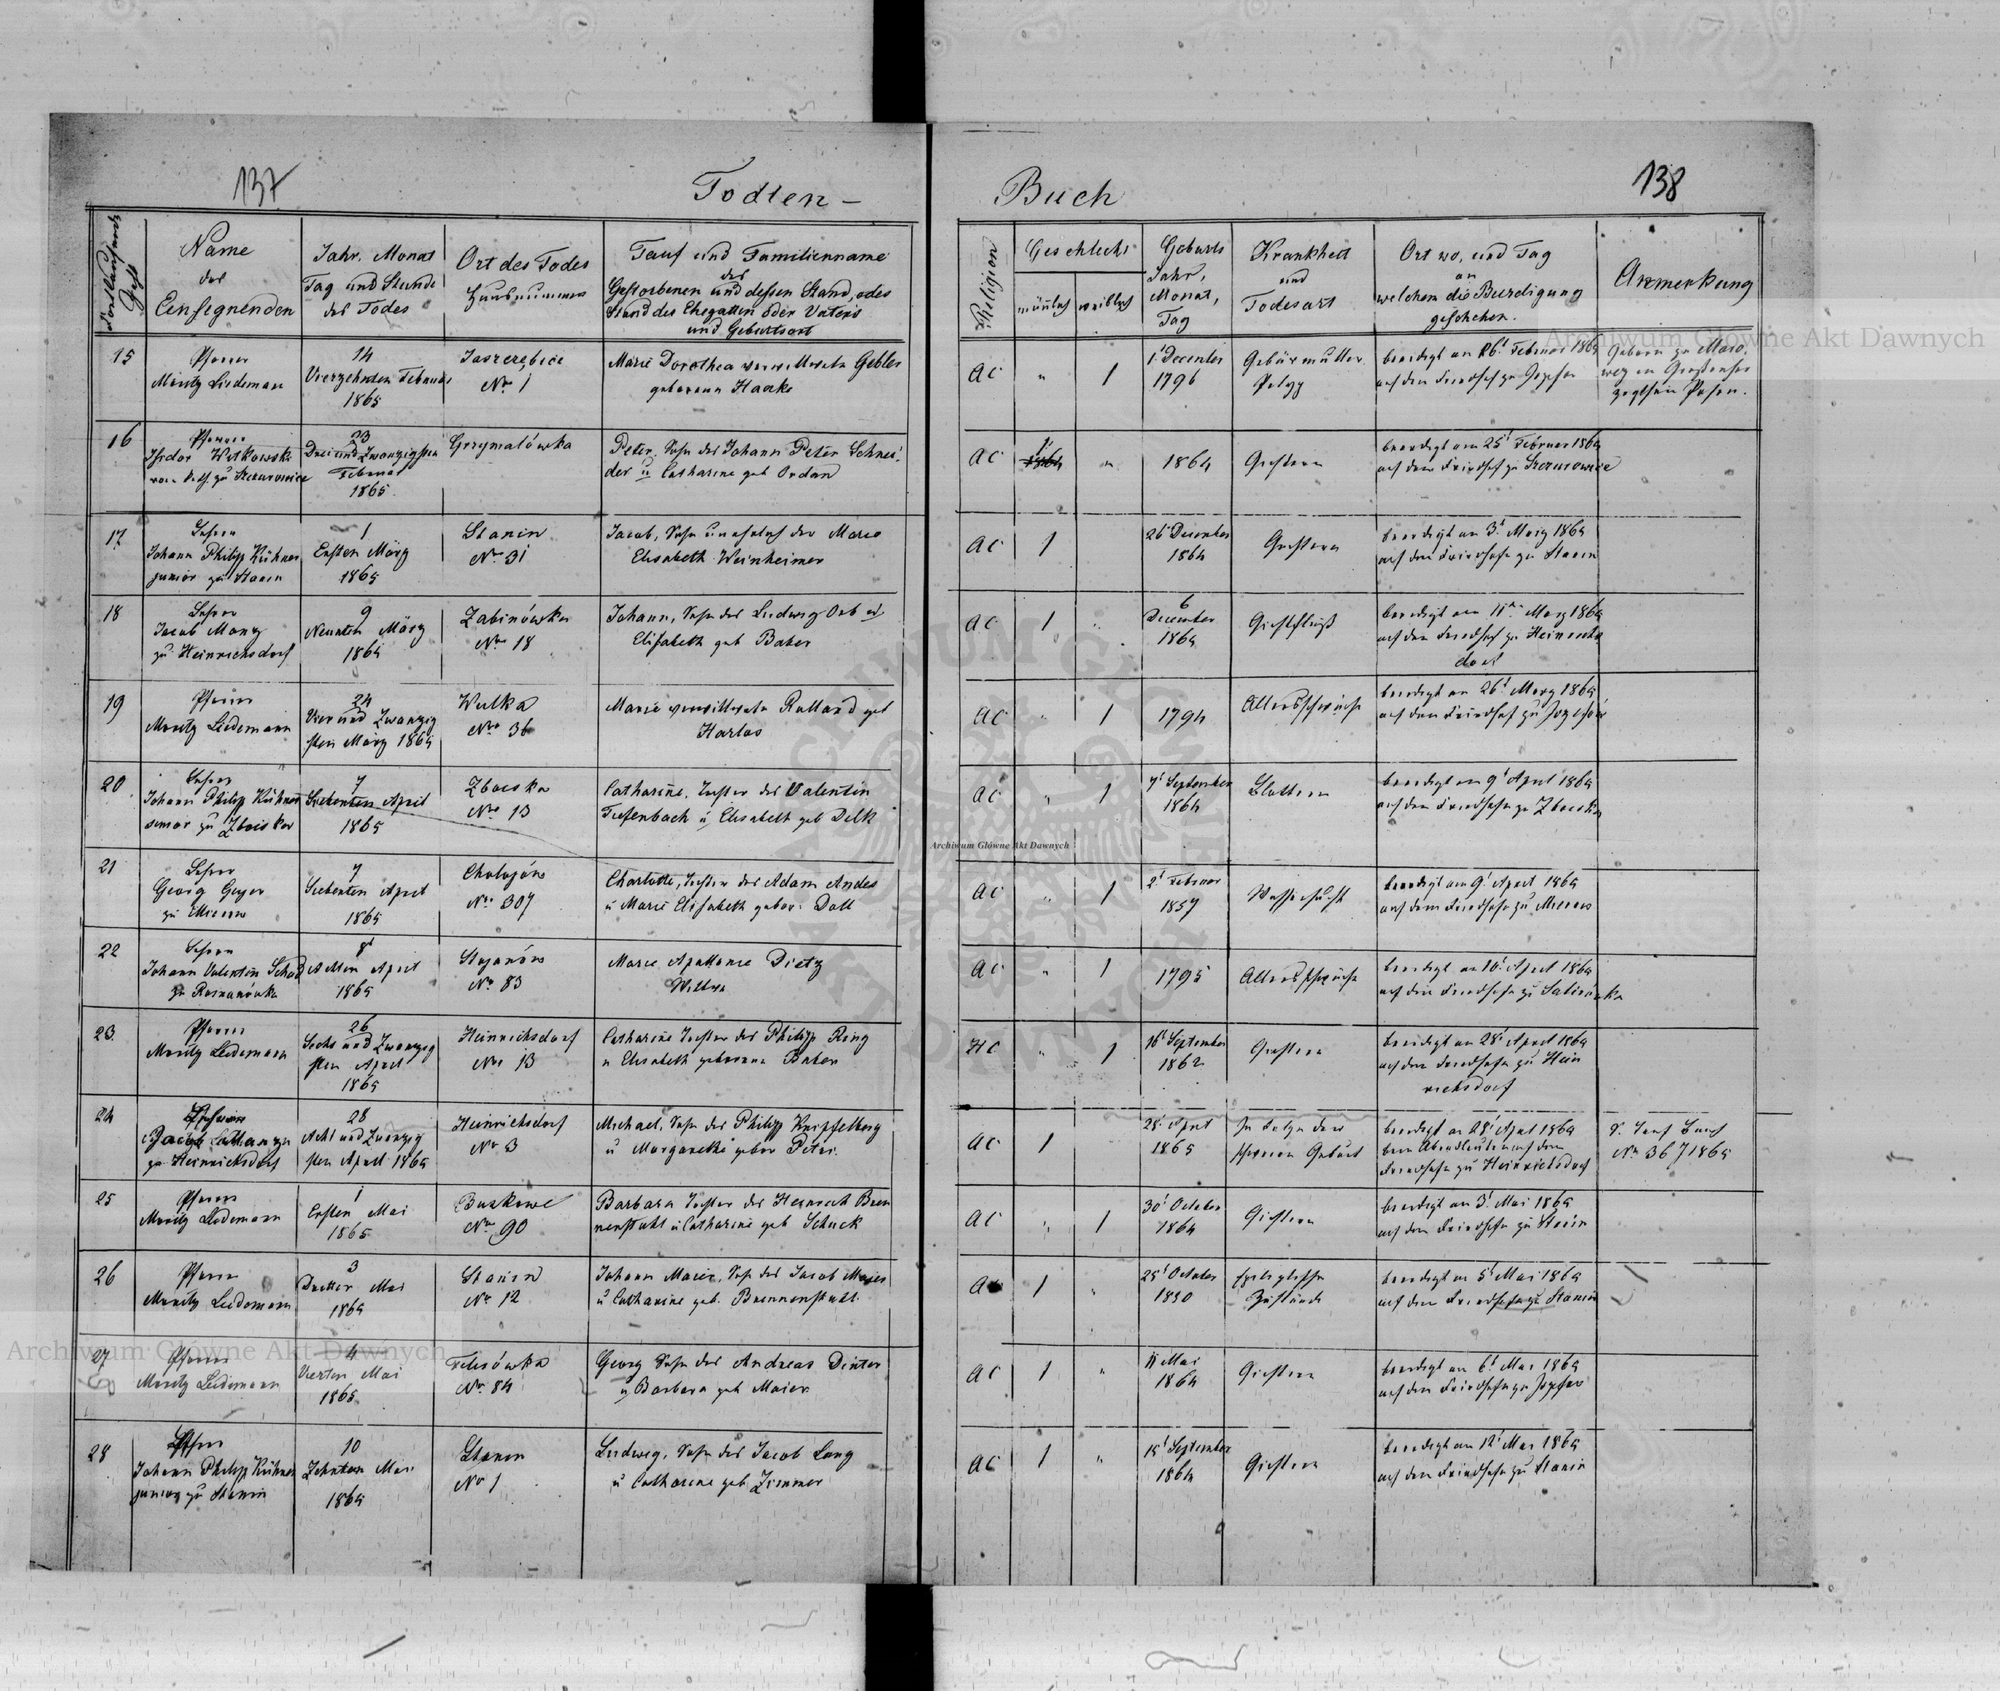 137
Todten –
Buch
138
Name
des
Einsegnenden
Jahr, Monat
Tag und Stunde
des Todes
Ort des Todes
Hausnummer
Tauf und Familienname
des
Gestorbenen und dessen Stand, oder
Stand des Ehegatten oder Vaters
und Geburtsort
Religion
Geschlecht
männlich
weiblich
Geburts
Jahr,
Monat,
Tag
Krankheit
und
Todesart
Ort wo, und Tag
an
welchem die Beerdigung
geschehen.
Anmerkung
15
Pfarrer
Moritz Leidemann
14
Vierzehnten Februar
1865
No 1
Marie Dorothea verwittwete Gebler
geborene Haake
AC
1
1t December
1796
Gebärmutter
beerdigt am 16t Februar 1865
auf dem Friedhof zu
Geboren zu
16
Pfarrer
Isidor Witkowski
zu Szczurowice
23
Drei und Zwanzigsten
Februar
1865
Grzymałówka
Peter, Sohn des Johann Peter Schnei-
der u Catharine geb Ordan
AC
1
1864
Gichtern
beerdigt am 25t Februar 1865
auf dem Friedhof zu Szczurowice
17
Lehrer
Johann Philipp Kühner
junior zu Stanin
1
Ersten März
1865
Stanin
No 31
Jacob, Sohn unehelich der Marie
Elisabeth Weinheimer
AC
1
26t December
1864
Gichtern
beerdigt am 3t März 1865
auf dem Friedhofe zu Stanin
18
Lehrer
Jacob Manz
zu Heinrichsdorf
9
Neunten März
1865
Zabinówka
No 18
Johann, Sohn des Ludwig Orb u
Elisabeth geb Baker
AC
1
6
December
1864
beerdigt am 11ten März 1865
auf dem Friedhof zu Heinrichs
dorf
19
Pfarrer
Moritz Leidemann
24
Vier und Zwanzig
sten März 1865
Wulka
No 36
Marie verwittwete Rolland geb
Harlos
AC
1
1794
Altersschwäche
beerdigt am 26t März 1865
auf dem Friedhof zu Jozefów
20
Lehrer
Johann Philipp Kühner
senior zu Zboiska
7
Siebenten April
1865
Zboiska
No 13
Catharine, Tochter des Valentin
Tiefenbach u Elisabeth geb Delk
AC
1
7t September
1864
Blattern
beerdigt am 9t April 1865
auf dem Friedhofe zu Zboiska
21
Lehrer
Georg Geyer
zu Mierów
7
Siebenten April
1865
Chołojów
No 307
Charlotte, Tochter des Adam Andes
u Marie Elisabeth gebor. Doll
AC
1
2t Februar
1857
Wassersucht
beerdigt am 9t April 1865
auf dem Friedhofe zu Mierów
22
Lehrer
Johann Valentin Schad
zu Romanówka
8t
Achten April
1865
Stojanów
No 83
Marie Apollonie Dietz
Wittwe
AC
1
1795
Altersschwäche
beerdigt am 10t April 1865
auf dem Friedhofe zu Sabinówka
23
Pfarrer
Moritz Leidemann
26
Sechs und Zwanzig
sten April
1865
Heinrichsdorf
No 13
Catharine Tochter des Philipp Ring
u Elisabeth geborene Baker
HC
1
16t September
1862
Gichtern
beerdigt am 28t April 1865
auf dem Friedhofe zu Hein
richsdorf
24
zu Heinrichsdorf
28
Acht und Zwanzig
sten April 1865
Heinrichsdorf
No 3
Michael, Sohn des Philipp Knipfelberg
u Margarethe gebor Peter.
AC
1
25t April
1865
In Folge der
schweren Geburt
beerdigt am 28t April 1865
Friedhofe zu Heinrichsdorf
No 36 / 1865
25
Pfarrer
Moritz Leidemann
1
Ersten Mai
1865
No 90
Barbara Tochter des Heinrich Bren
nenstuhl u Catharine geb Schuck
AC
1
30t October
1864
Gichtern
beerdigt am 3t Mai 1865
auf dem Friedhofe zu Stanin
26
Pfarrer
Moritz Leidemann
3
Dritter Mai
1865
Stanin
No 12
Johann Maier, Sohn des Jacob Maier
u Catharine geb. Brennenstuhl.
1
25t October
1850
Zustände
beerdigt am 5t Mai 1865
auf dem Friedhofe zu Stanin
27
Pfarrer
Moritz Leidemann
4
Vierten Mai
1865
No 84
Georg Sohn des Andreas Dinter
u Barbara geb Maier
AC
1
11 Mai
1864
Gichtern
beerdigt am 6t Mai 1865
auf dem Friedhofe zu
28
Johann Philipp Kühner
junior zu Stanin
10
Zehnten Mai
1865
Stanin
No 1
Ludwig, Sohn des Jacob Lang
u Catharine geb Zimmer
AC
1
15t September
1864
Gichtern
beerdigt am 12t Mai 1865
auf dem Friedhofe zu Stanin
Archiwum Główne Akt Dawnych
Archiwum Główne Akt Dawnych
Archiwum Główne Akt Dawnych
ARCHIWUM GŁÓWNE AKT DAWNYCH